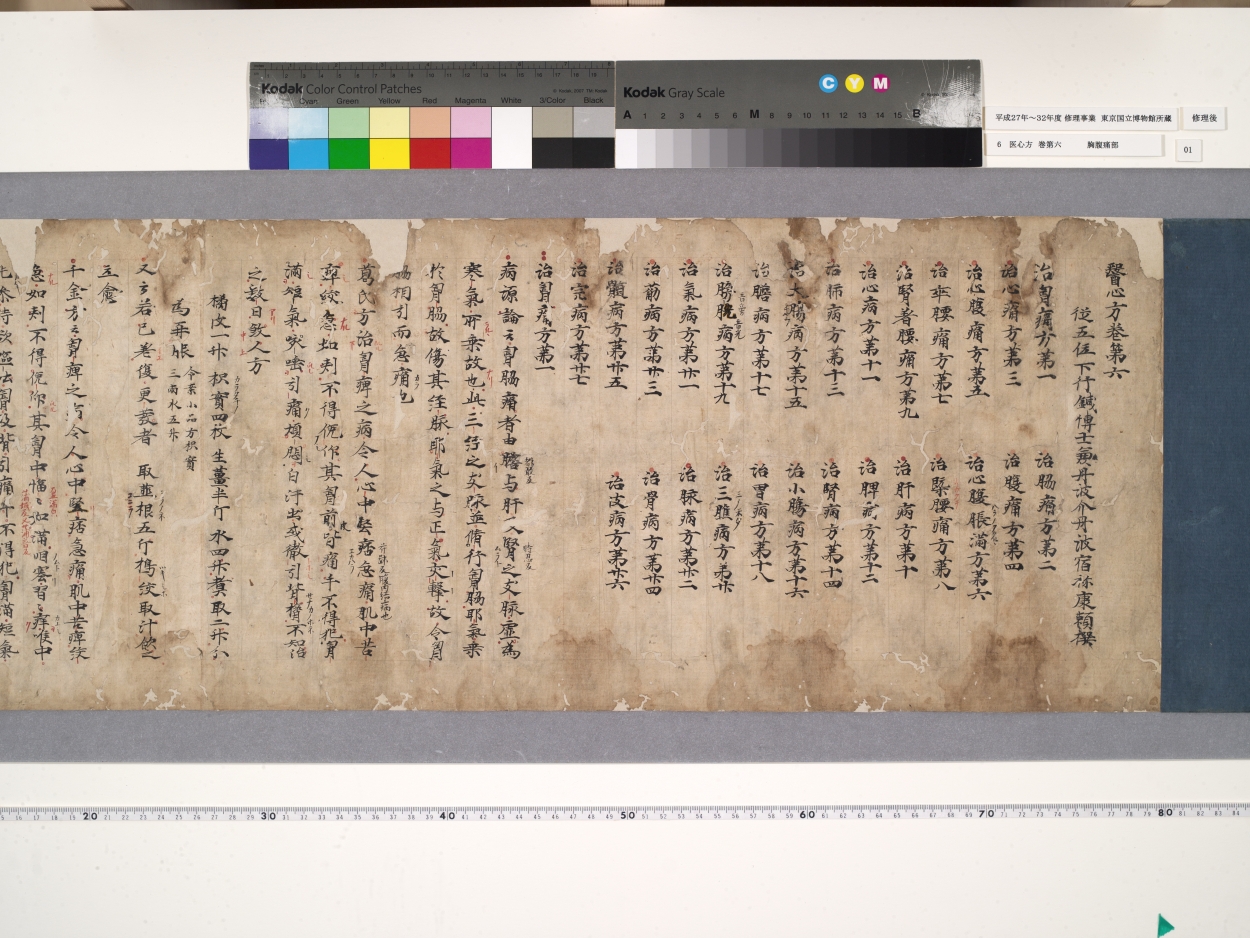 Kodak Color Control Patches
Cyan Green Yellow Red Magenta White 3/Color Black
Kodak Gray Scale
C Y M
A 1 2 3 4 5 6 M 8 9 10 11 12 13 14 15 B
平成27年~32年度 修理事業 東京国立博物館所蔵
修理後
6 医心方 巻第六 胸腹痛部
01
醫心方卷第六
從五位下行鍼博士兼丹波介丹波宿祢康頼撰
治胷痛方第一 治脇痛方第二
治心痛方第三 治腹痛方第四
治心腹痛方第五 治心腹脹滿方第六
治卒腰痛方第七 治䐴腰痛方第八
治腎著腰痛方第九 治肝病方第十
治心病方第十一 治脾病方第十二
治肺病方第十三 治腎病方第十四
治大腸病方第十五 治小腸病方第十六
治膽病方第十七 治胃病方第十八
治膀胱病方第十九 治三膲病方第廿
治氣病方第廿一 治脉病方第廿二
治筋病方第廿三 治骨病方第廿四
治髓病方第廿五 治皮病方第廿六
治完病方第廿七
治胷痛方第一
病源論云胷脇痛者由膽与肝及腎之支脉虛為
寒氣所乗故也此三经之支脉並循行胷脇耶氣乗
於胷脇故傷其経脉耶氣之与正氣交擊故令胷
脇相引而急痛也
葛氏方治胷痹之病令人心中堅痞急痛肌中苦
痹絞急如刺不得俛仰其胷前皮皆痛手不得犯胷
滿短氣咳唾引痛煩悶白汗出或徹引背膂不即治
之數日致人方
橘皮一升 枳實四枚 生薑半斤 水四升煮取二升分
為再服
令案小品方枳實
三両水五升
又云若已差復更發者 取韮根五斤擣絞取汁飲之
立愈
千金方云胷痹之病令人心中堅痞急痛肌中苦痹絞
急如刺不得俛仰其胷中愊々如滿咽塞習々痒喉中